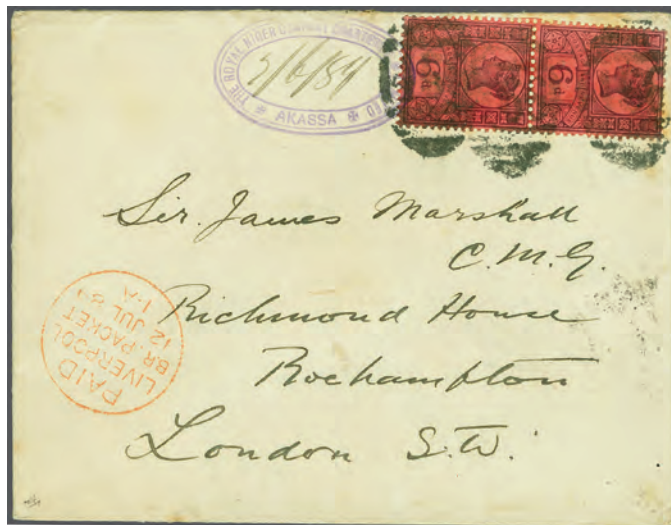 THE ROYAL NIGER COMPANY CHARTERED
AKASSA
6d
6d
Sir. James Marshall
C. M. G.
Richmond House
Rochampton
London S.W.
PAID
LIVERPOOL
BR. PACKET
12 JUL 8